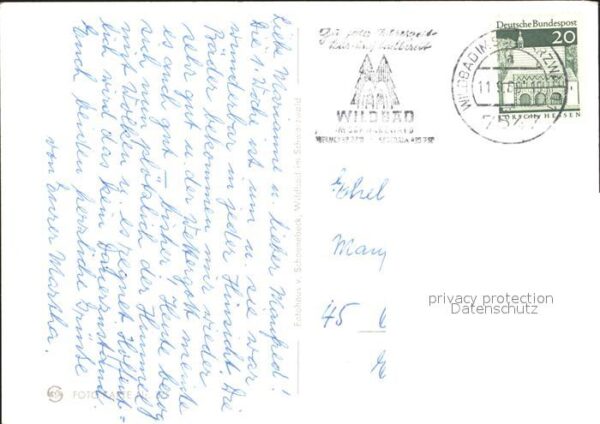 Liebe Marianne u. lieber Manfred!
Die 1. Woche ist um u. sie war
wunderbar in jeder Hinsicht. Die
Bäder bekommen mir wieder
sehr gut u. der Wettergott meinte
es auch gut bisher. Heute bezog
sich nun plötzlich der Himmel
mit Wolken u. es regnet. Hoffent=
lich wird das kein Dauerzustand.
Euch beiden herzliche Grüße
von Eurer Martha.
Fotohaus v. Schoenebeck, Wildbad im Schwarzwald
FOTO
Zu jeder Jahreszeit
WILDBAD
IM SCHWARZWALD
Deutsche Bundespost
20
LORSCH/HESSEN
WILDBAD IM SCHWARZWALD
a
7547
45
privacy protection
Datenschutz